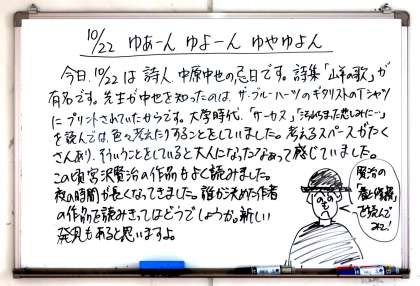 10/22 ゆあーん ゆよーん ゆやゆよん
今日、10/22は詩人、中原中也の忌日です。詩集「山羊の歌」が
有名です。先生が中也を知ったのは、ザ・ブルーハーツのギタリストのTシャツ
にプリントされていたからです。大学時代、「サーカス」「汚れちまった悲しみに…」
を読んでは、色々考えたりすることをしていました。考えるスペースがたく
さんあり、そういうことをしていると大人になったなぁって感じていました。
この頃宮沢賢治の作品もよく読みました。
夜の時間が長くなってきました。誰か決めた作者
の作品を読みきってはどうでしょうか。新しい
発見もあると思いますよ。
賢治の
「春と修羅」
も読んで
みて!